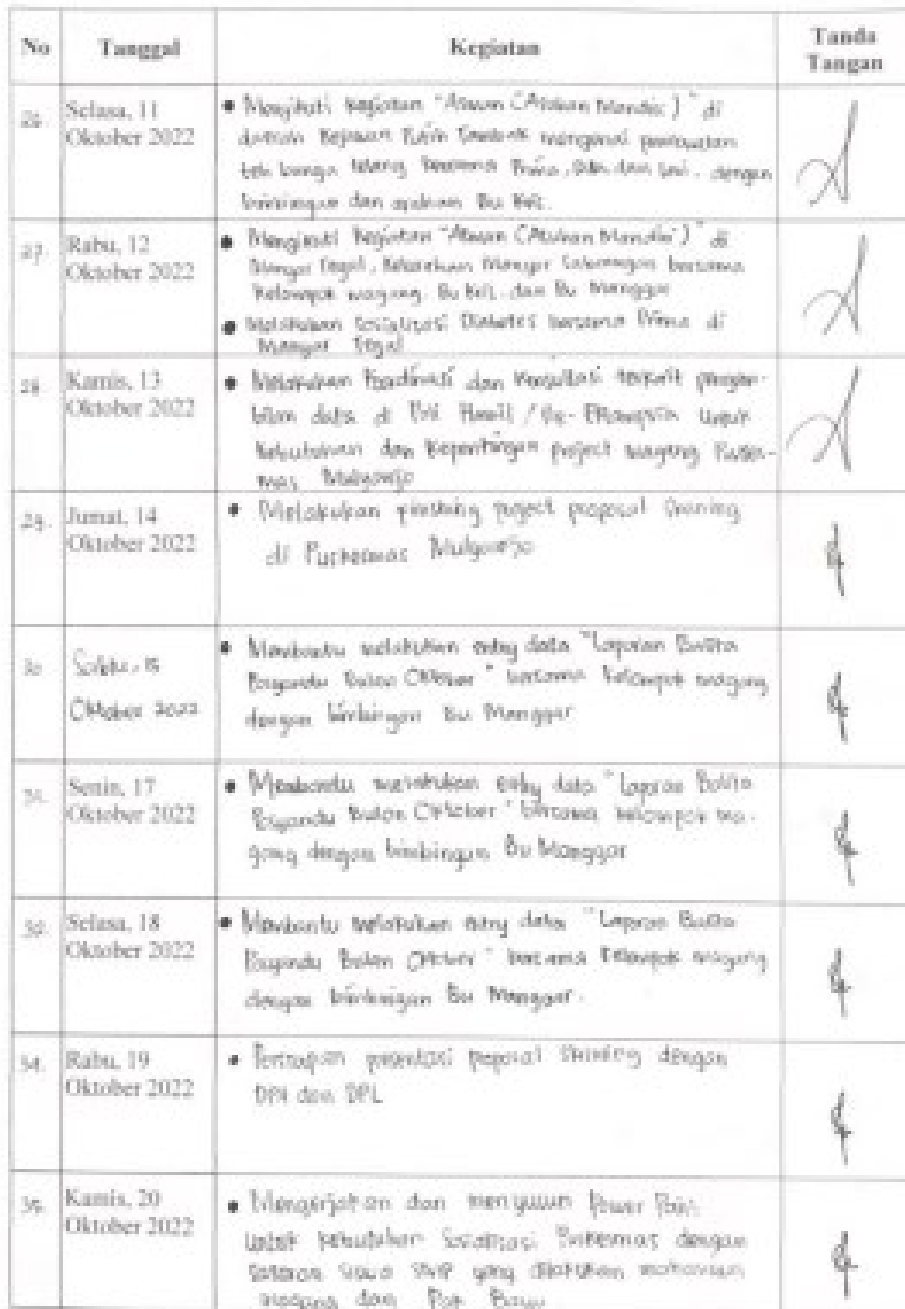 No Tanggal Kegiatan Tanda
Tangan
26. Selasa, 11
Oktober 2022
• Mengikuti kegiatan "Asman (Asuhan Mandiri)" di
daerah Kejawan mengenai pembuatan
teh bunga telang bersama Prima, dan, dengan
bimbingan dan arahan Bu Kris.
27. Rabu, 12
Oktober 2022
• Mengikuti kegiatan "Asman (Asuhan Mandiri)" di
Manyar Tegal, Kelurahan Manyar Sabrangan bersama
kelompok magang, Bu Kris dan Bu Manggar
• Melakukan sosialisasi Diabetes bersama Prima di
Manyar Tegal
28. Kamis, 13
Oktober 2022
• Melakukan koordinasi dan konsultasi terkait pengam-
bilan data di Poli Hamil / untuk
kebutuhan dan kepentingan project magang Puskes-
mas Mulyorejo
29. Jumat, 14
Oktober 2022
• Melakukan project proposal
di Puskesmas Mulyorejo
30. Sabtu, 15
Oktober 2022
• Membantu melakukan entry data "Laporan Balita
Posyandu Bulan Oktober" bersama kelompok magang
dengan bimbingan Bu Manggar
31. Senin, 17
Oktober 2022
• Membantu melakukan entry data "Laporan Balita
Posyandu Bulan Oktober" bersama kelompok ma-
gang dengan bimbingan Bu Manggar
32. Selasa, 18
Oktober 2022
• Membantu melakukan entry data "Laporan Balita
Posyandu Bulan Oktober" bersama kelompok magang
dengan bimbingan Bu Manggar.
34. Rabu, 19
Oktober 2022
• Persiapan presentasi proposal dengan
dan DPL
35. Kamis, 20
Oktober 2022
• Mengerjakan dan menyusun Power Point
untuk kebutuhan sosialisasi Puskesmas dengan
sasaran siswa SMP yang dilakukan mahasiswa
magang dan Pak Bayu